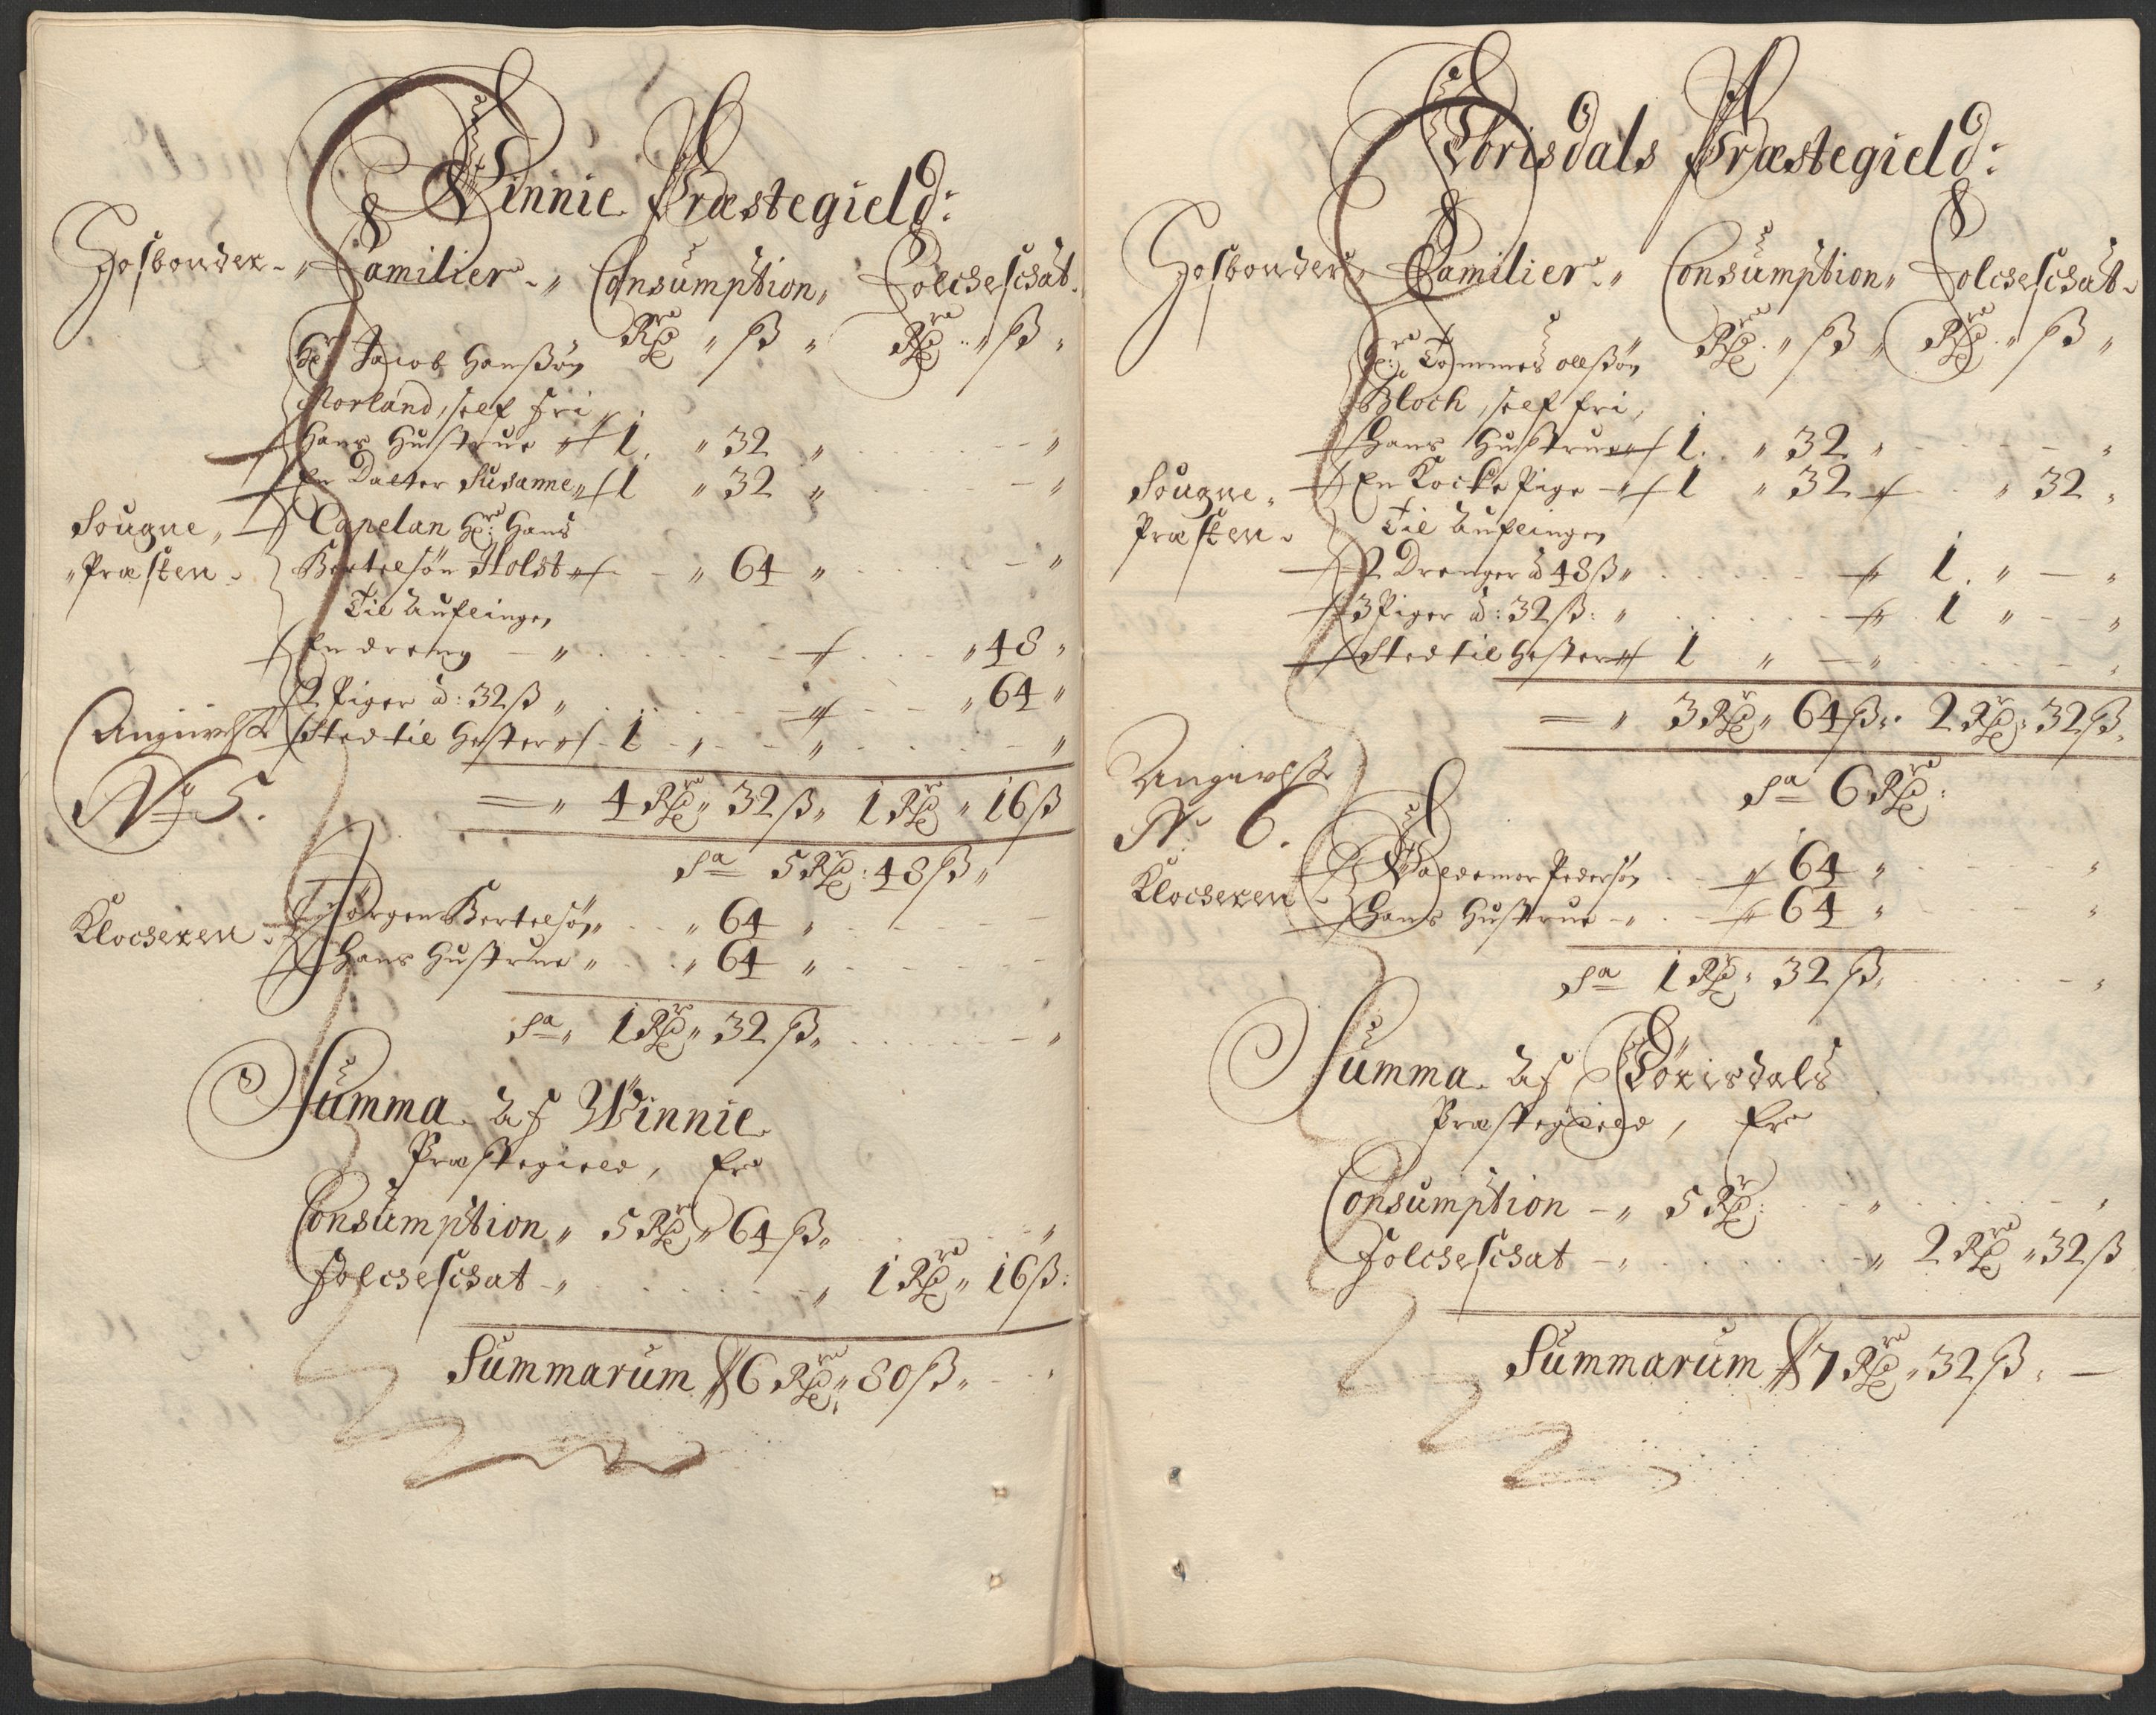 Winnie Præstegield:
Hosbonder „ Familier „ Consumption „ Folcheschat
Rdr „ ß „ Rdr „ ß „
Hr: Jacob Hanßøn
Morland, self fri
Hans Hustrue „ 1. „ 32 „
En Datter Susanne „ 1 „ 32 „
Sougne „ Capelan Hr: Hans
Præsten Bertelsøn Holst „ 64 „
Til Auflingen
En dreng „ „ 48 „
2 Piger à: 32 ß „ „ 64 „
Angivelse Sted til Hester „ 1 „ „
No 5. = „ 4 Rdr „ 32 ß „ 1 Rdr „ 16 ß
Sa 5 Rdr: 48 ß „
Klocheren Jørgen Bertelsøn „ „ 64 „
Hans Hustrue „ „ 64 „
Sa „ 1 Rdr „ 32 ß „
Summa Af Winnie
Præstegield, Er
Consumption „ 5 Rdr „ 64 ß „
Folcheschat „ „ 1 Rdr „ 16 ß:
Summarum 6 Rdr „ 80 ß „
Tørisdals Præstegield:
Hosbonder „ Familier „ Consumption „ Folcheschat
Rdr „ ß „ Rdr „ ß „
Hr: Tommes Ollßøn
Bloch, self fri,
Hans Hustrue 1. „ 32 „
Sougne En Kocke Pige 1 „ 32 „ 32 „
Præsten Til Auflingen
2 Drenger à 48 ß „ 1. „ — „
3 Piger à: 32 ß: „ 1 „ — „
Sted til Hester 1 „ — „
= „ 3 Rdr „ 64 ß: 2 Rdr: 32 ß.
Angivelse Sa 6 Rdr:
No 6.
Klocheren Waldemar Pedersøn 64 „
Hans Hustrue „ 64 „
Sa 1 Rdr: 32 ß.
Summa Af Tørisdals
Præstegield, Er
Consumption „ 5 Rdr: „
Folcheschat „ „ 2 Rdr „ 32 ß
Summarum 7 Rdr „ 32 ß „ —